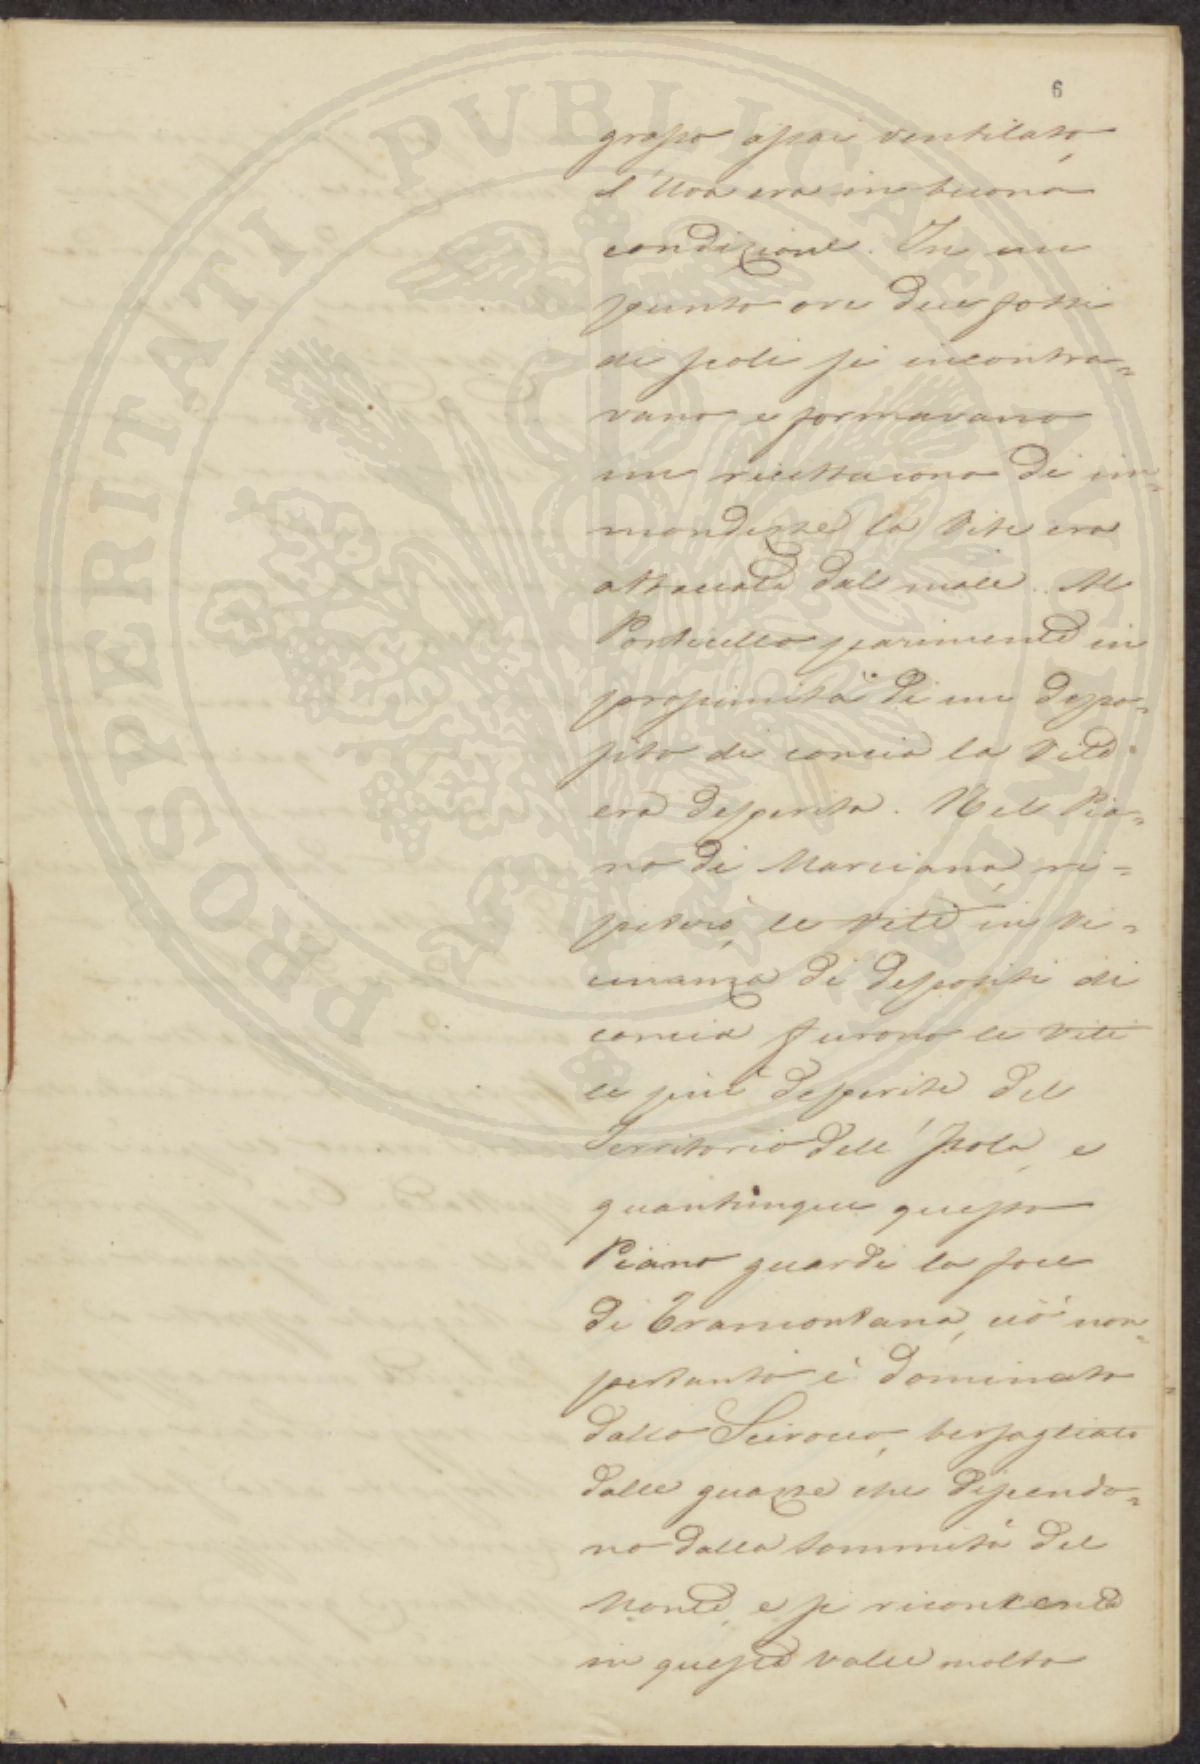 6
grosso assai ventilato,
l'Uva era in buona
condizione. In un
punto ove due fossi
di scoli si incontra=
vano e formavano
un ricettacono di im=
mondizze la Vite era
attaccata dal male. Al
Ponticello parimente in
prossimità di un depo=
sito di concia la Vite
era deperita. Nel Pia=
no di Marciana, ri=
peterò, le Vite in vi=
cinanza di depositi di
concia furono le viti
le più deperite del
Territorio dell'Isola, e
quantunque questo
Piano guardi la foce
di Tramontana, ciò non=
pertanto è dominato
dallo Scirocco, bersagliato
dalle guazze che discendo=
no dalla sommità del
Monte, e si
in queste valle molto
PROSPERITATI PUBLICAE